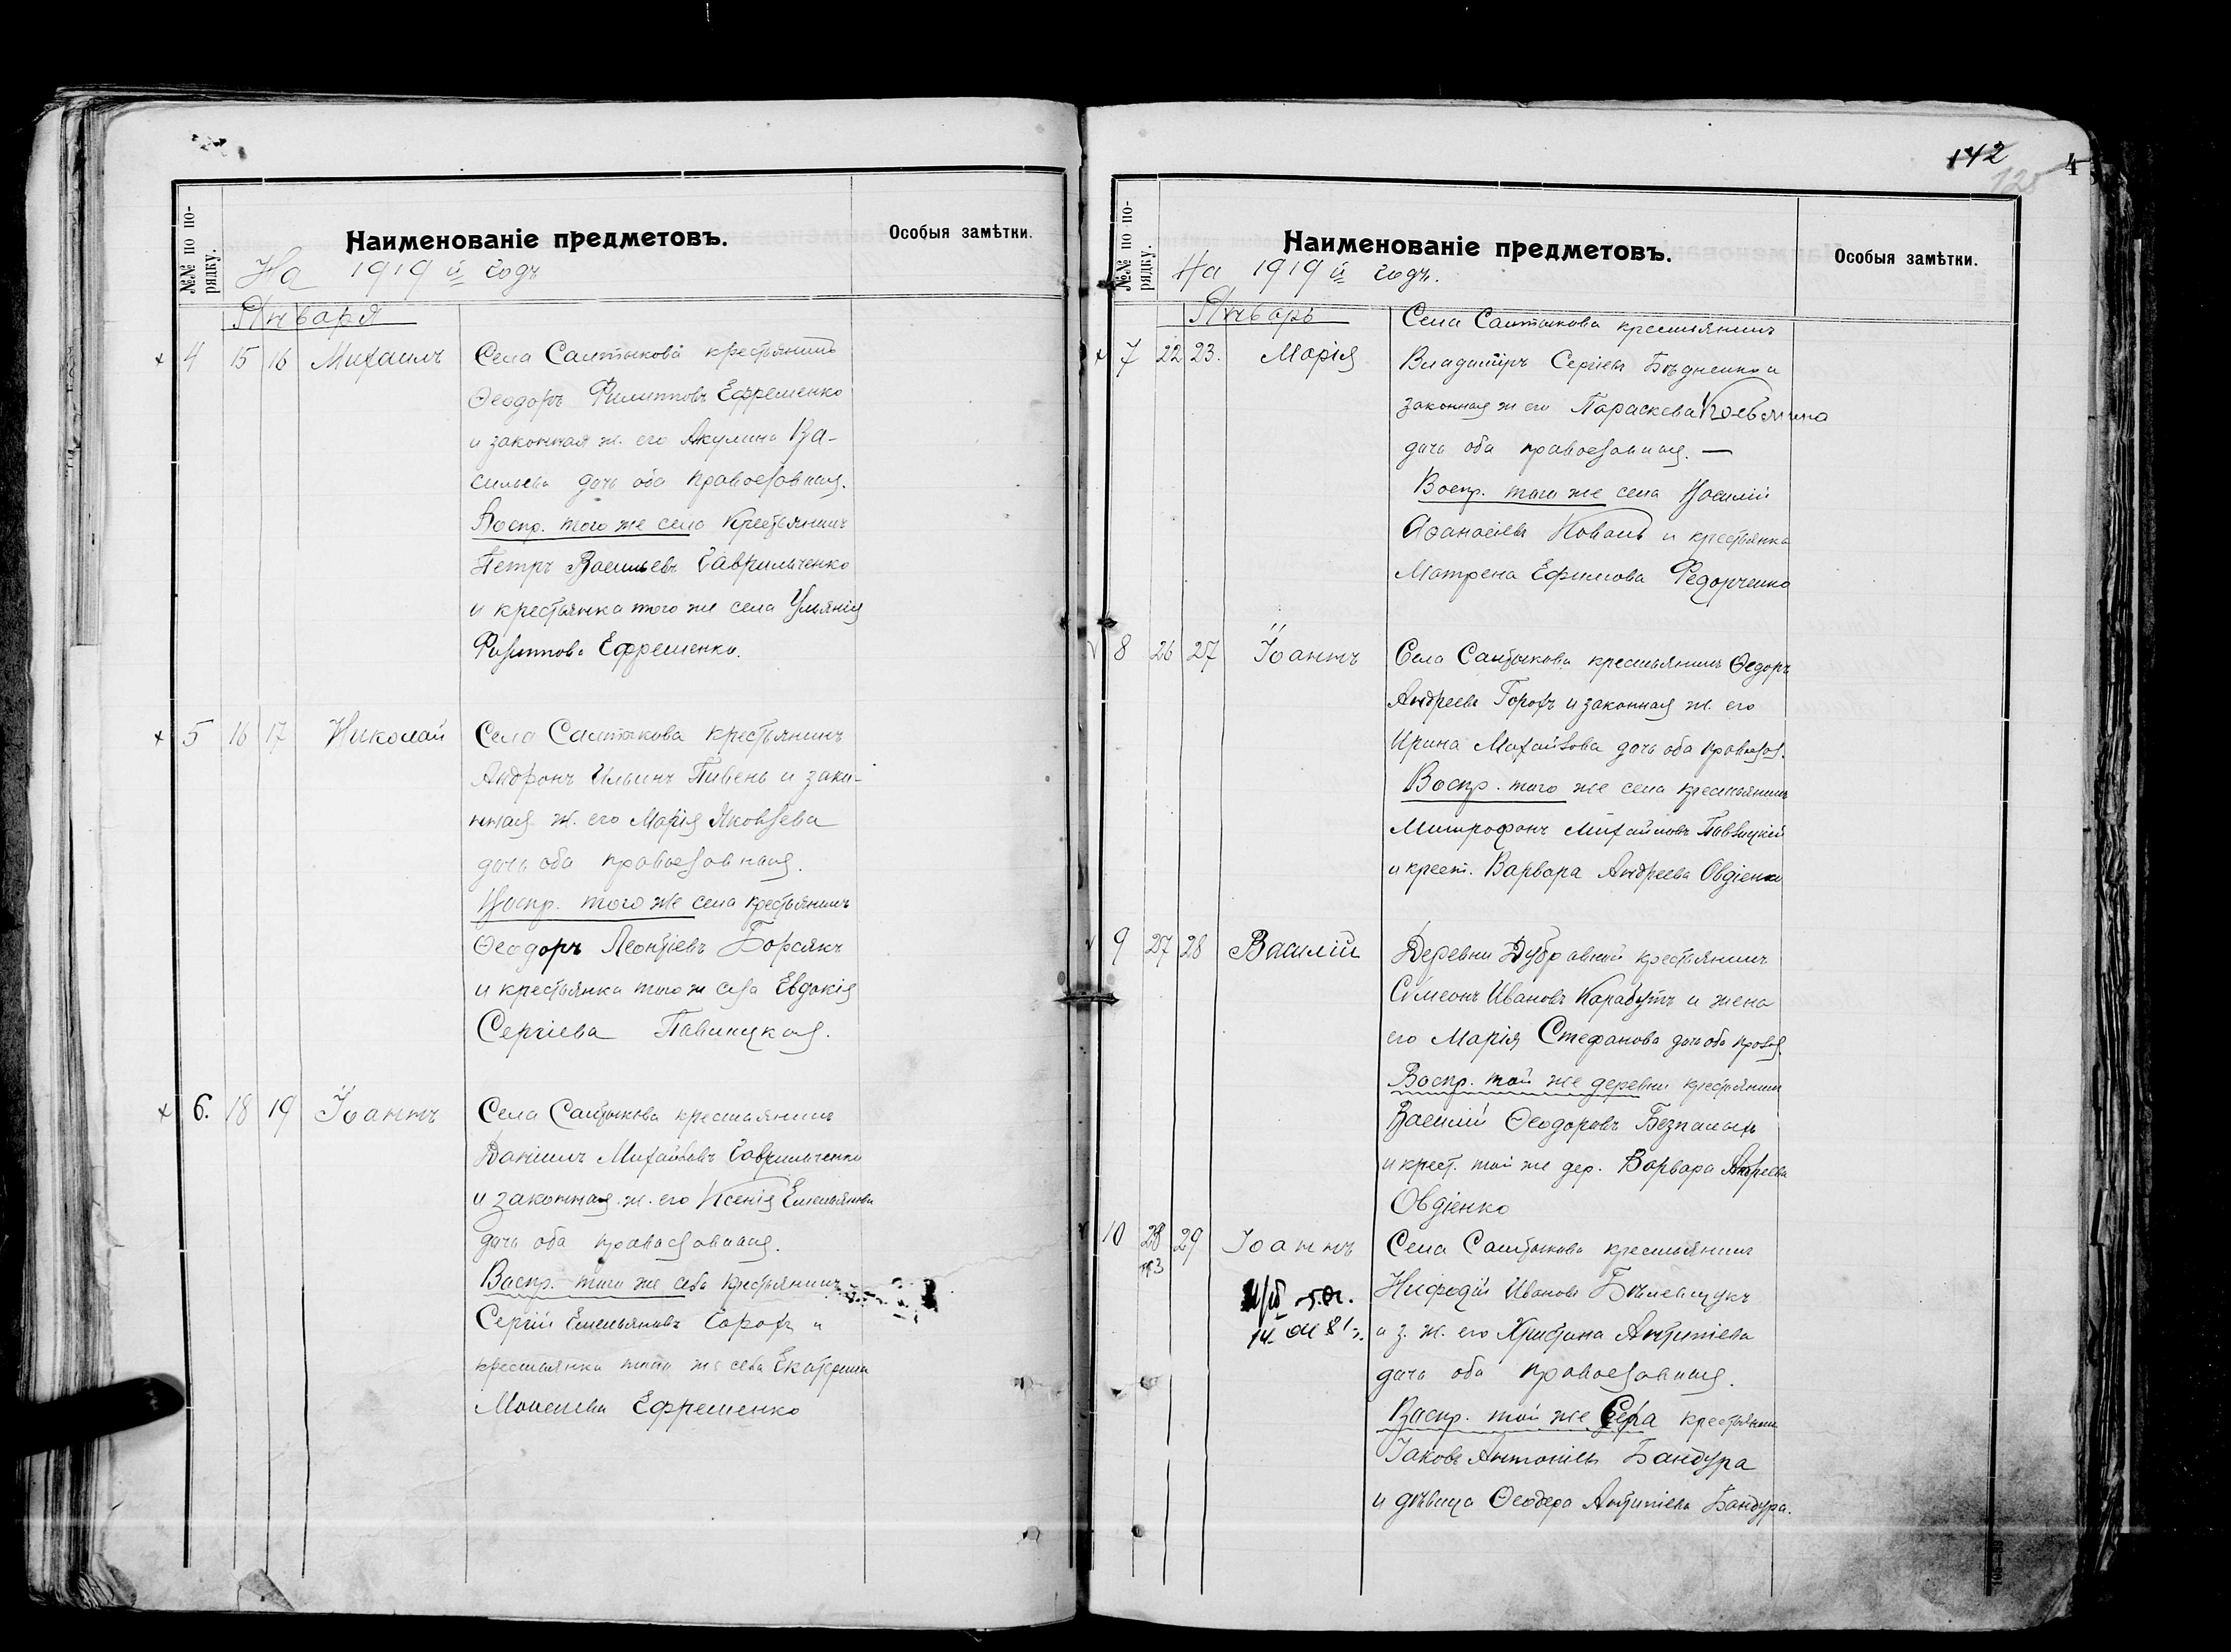 №№ по порядку.
Наименованіе предметовъ.
Особыя замѣтки.
На 1919 й годъ
Января
4 15 16 Михаилъ
Села Салтыкова крестьянинъ
Ѳеодоръ Филипповъ Ефременко
и законная ж. его Акулина Ва-
сильева дочь оба православныя.
Воспр. того же села крестьянинъ
Петръ Васильевъ Гаврильченко
и крестьянка того же села Ульянія
Филиппова Ефременко.
5 16 17 Николай
Села Салтыкова крестьянинъ
Андронъ Ильинъ Пивень и зако-
нная ж. его Марія Яковлева
дочь оба православныя.
Воспр. того же села крестьянинъ
Ѳеодоръ Леонтіевъ Борсякъ
и крестьянка того ж села Евдокія
Сергіева Павлицкая.
6. 18 19 Іоаннъ
Села Салтыкова крестьянинъ
Даніилъ Михайловъ Гаврильченко
и законная ж. его Ксенія Емельянова
дочь оба православныя.
Воспр. того же села крестьянинъ
Сергій Емельяновъ Горохъ и
крестьянка того же села Екатерина
Моисеева Ефременко
142
125
4
№№ по порядку.
Наименованіе предметовъ.
Особыя замѣтки.
На 1919 й годъ.
Январь
Села Салтыкова крестьянинъ
7 22 23. Марія
Владиміръ Сергіевъ Бѣдненко и
законная ж его Параскева
дочь оба православныя. —
Воспр. того же села Василій
Аѳанасіевъ Коваль и крестьянка
Матрена Ефимова Федорченко
8 26 27 Іоаннъ
Села Салтыкова крестьянинъ Ѳедоръ
Андреевъ Горохъ и законная ж. его
Ирина Михайлова дочь оба правосл.
Воспр. того же села крестьянинъ
Митрофанъ Михайловъ Павлицкій
и крест. Варвара Андреева Овдіенко
9 27 28 Василій
Деревни Дубравной крестьянинъ
Симеонъ Ивановъ Карабутъ и жена
его Марія Стефанова дочь оба правосл.
Воспр. той же деревни крестьянинъ
Василій Ѳеодоровъ Безпалыхъ
и крест. той же дер. Варвара Андреева
Овдіенко
10 28 29 Іоаннъ
Села Салтыкова крестьянинъ
Ивановъ
и з. ж. его Христина Антипіева
дочь оба православныя.
Воспр. той же села крестьянинъ
Іаковъ Антоніевъ Бандура
и дѣвица Ѳеодора Антипіева Бандура.